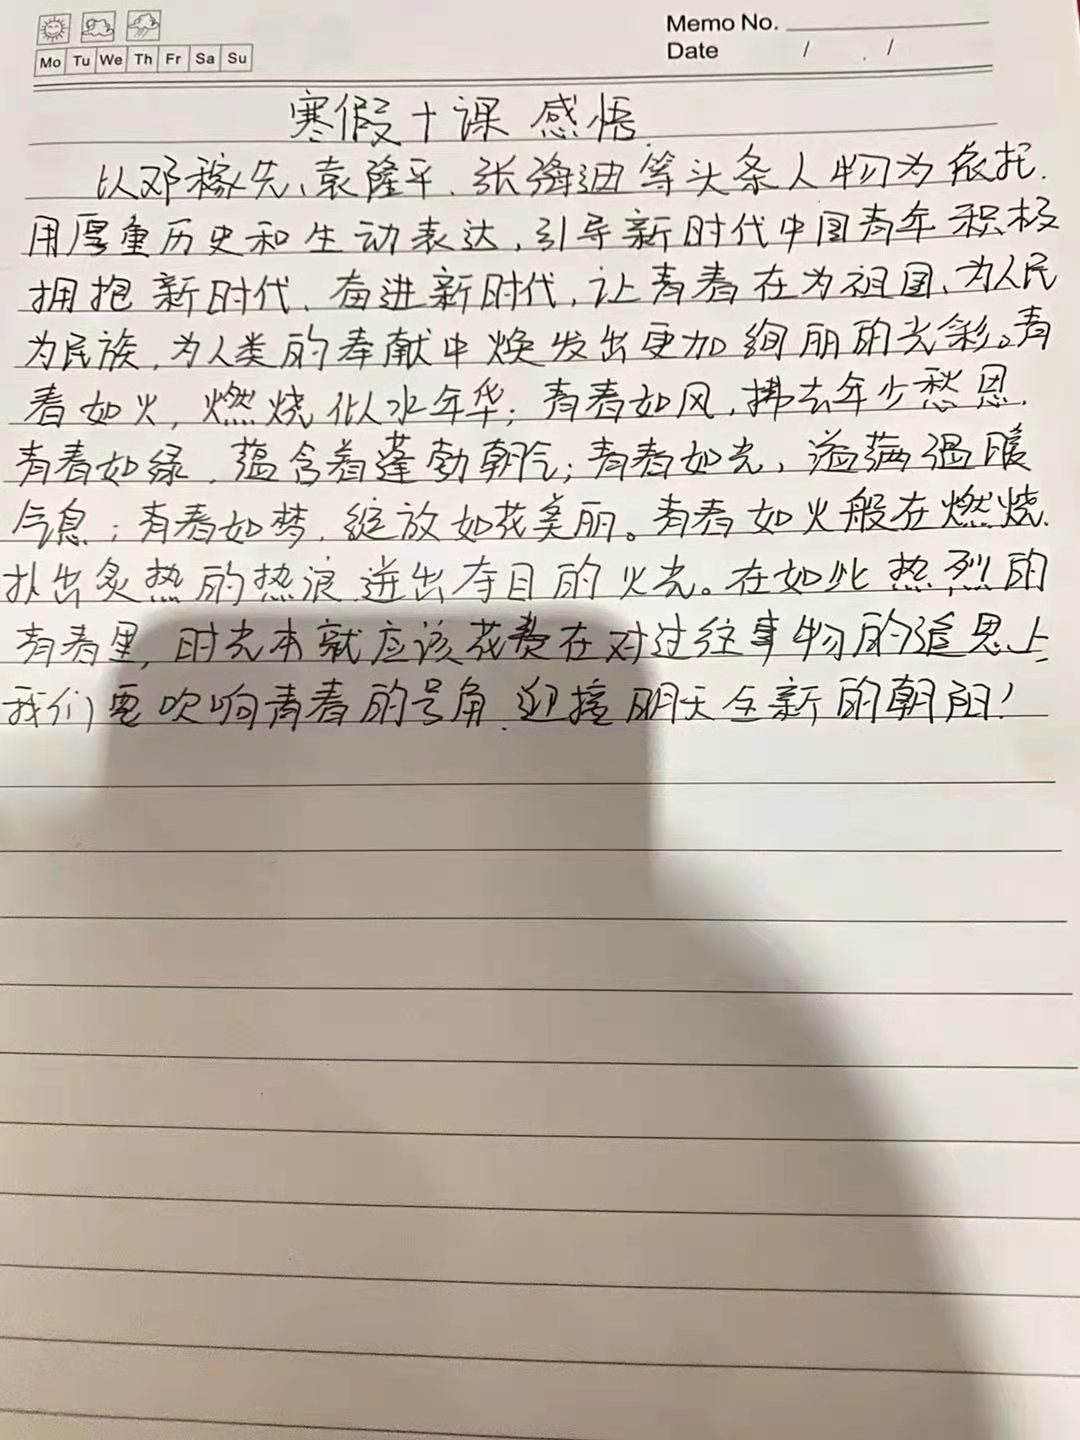 Memo No.
Mo Tu We Th Fr Sa Su
Date / /
寒假十课 感悟
以邓稼先、袁隆平、张海迪等头条人物为依托,
用厚重历史和生动表达,引导新时代中国青年积极
拥抱新时代、奋进新时代,让青春在为祖国、为人民
为民族,为人类的奉献中焕发出更加绚丽的光彩。青
春如火,燃烧似水年华;青春如风,拂去年少愁思,
青春如绿,蕴含着蓬勃朝气;青春如光,溢满温暖
气息;青春如梦,绽放如花美丽。青春如火般在燃烧,
扑出炙热的热浪,迸出夺目的火光。在如此热烈的
青春里,时光本就应该花费在对过往事物的追思上
我们要吹响青春的号角,迎接明天全新的朝阳!